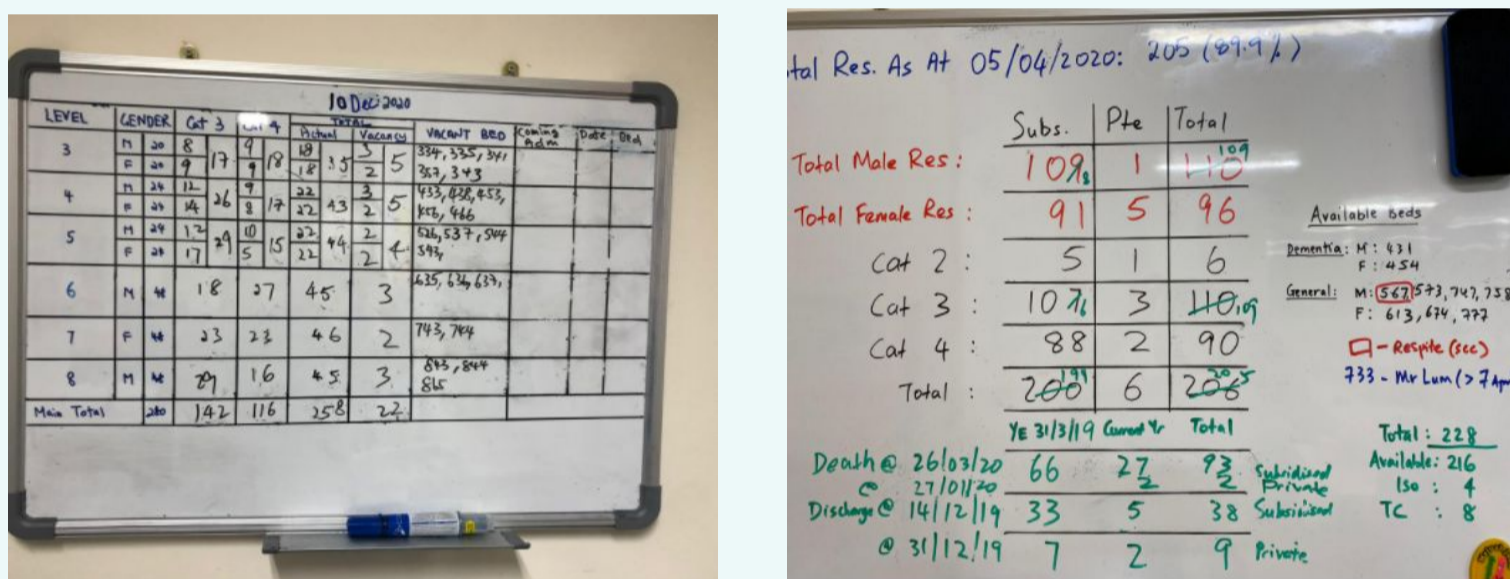 10 Dec 2020
LEVEL GENDER Cat 3 Cat 4 TOTAL Actual Vacancy VACANT BED Coming Adm Date Bed
3 M 20 8 17 9 18 18 35 3 5 334, 335, 341,
F 20 9 9 18 2 343
4 M 24 12 26 9 17 22 43 3 5 433, 438, 453,
F 24 14 8 22 2 456, 466
5 M 24 12 29 10 15 22 44 2 4 526, 537, 544
F 24 17 5 22 2 543,
6 M 48 18 27 45 3 635, 636, 637,
7 F 48 23 23 46 2 743, 744
8 M 48 29 16 45 3 843, 844
865
Main Total 280 142 116 258 22
tal Res. As At 05/04/2020: 205 (89.9%)
Subs. Pte Total
Total Male Res: 109 8 1 110 109
Total Female Res: 91 5 96
Cat 2: 5 1 6
Cat 3: 107 6 3 110 109
Cat 4: 88 2 90
Total: 200 199 6 206 205
YE 31/3/19 Current Yr Total
Death @ 26/03/20 66 27 93 Subsidised
@ 27/01/20 2 2 Private
Discharge @ 14/12/19 33 5 38 Subsidised
@ 31/12/19 7 2 9 Private
Available Beds
Dementia: M: 431
F: 454
General: M: 567, 573, 747, 758
F: 613, 674, 777
- Respite (scc)
733 - Mr Lum (> 7 Apr
Total: 228
Available: 216
Iso: 4
TC: 8